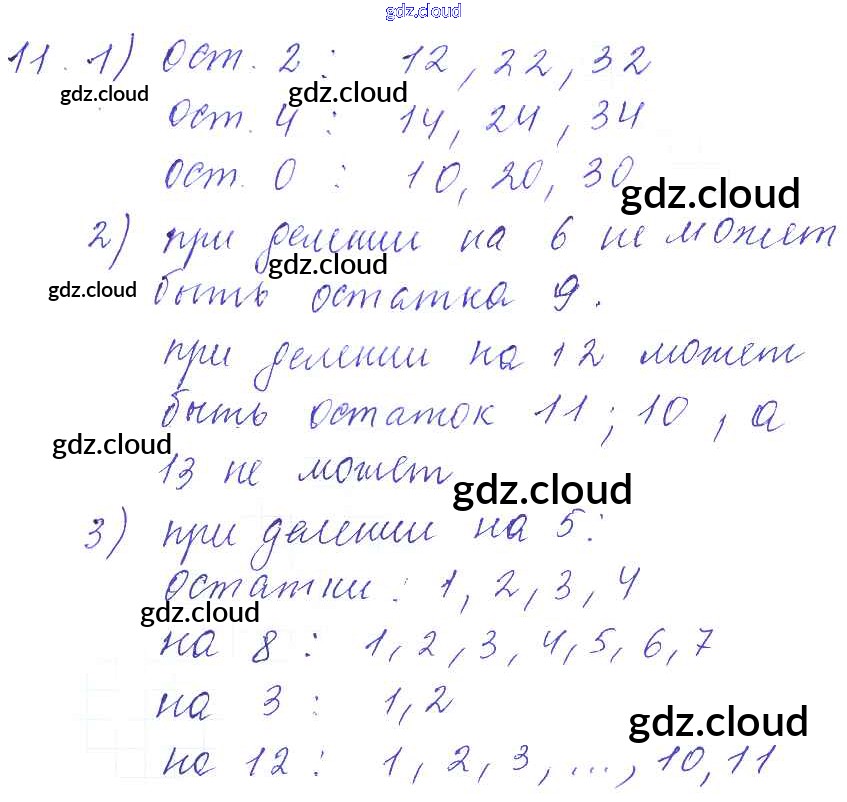 gdz.cloud
11. 1) ост. 2 : 12, 22, 32
gdz.cloud gdz.cloud
ост. 4 : 14, 24, 34
ост. 0 : 10, 20, 30
gdz.cloud
2) при делении на 6 не может
gdz.cloud gdz.cloud
быть остатка 9.
при делении на 12 может
быть остаток 11; 10, а
gdz.cloud
13 не может
gdz.cloud
3) при делении на 5:
остатки: 1, 2, 3, 4
gdz.cloud
на 8 : 1, 2, 3, 4, 5, 6, 7
на 3 : 1, 2
gdz.cloud
на 12 : 1, 2, 3, ..., 10, 11